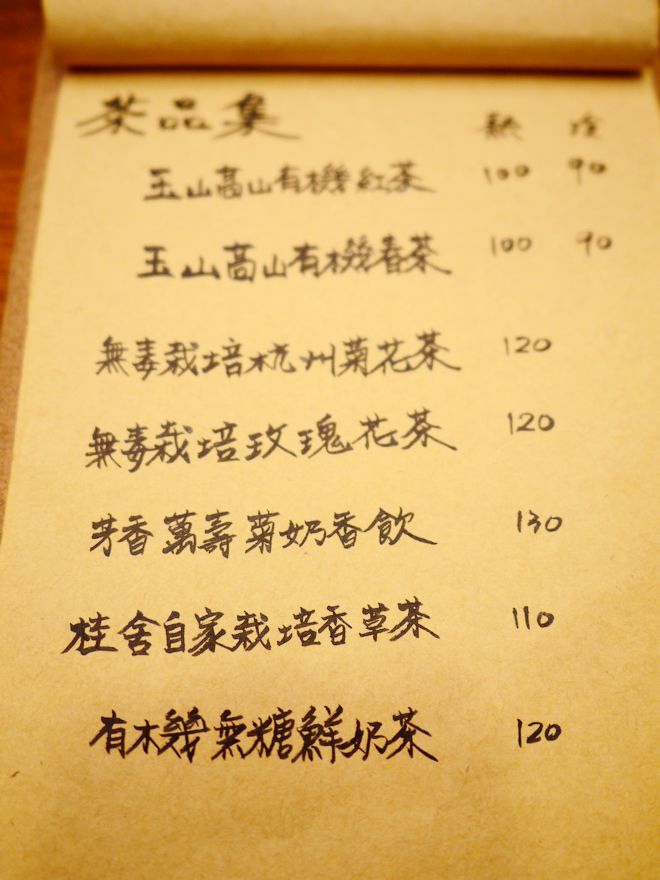 茶品集 熱 冷
玉山高山有機紅茶 100 90
玉山高山有機春茶 100 90
無毒栽培杭州菊花茶 120
無毒栽培玫瑰花茶 120
芳香萬壽菊奶香飲 130
桂舍自家栽培香草茶 110
有機無糖鮮奶茶 120